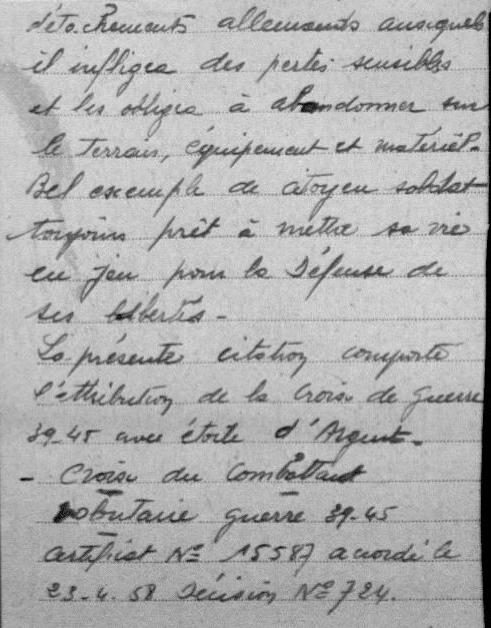 détachements allemands auxquels
il infligea des pertes sensibles
et les obligea à abandonner sur
le terrain, équipement et matériel.
Bel exemple de citoyen soldat
toujours prêt à mettre sa vie
en jeu pour la Défense de
ses libertés -
La présente citation comporte
l'attribution de la Croix de guerre
39-45 avec étoile d'Argent -
- Croix du Combattant
volontaire guerre 39-45
certificat N° 15587 accordé le
23-4-58 Décision N° 724.